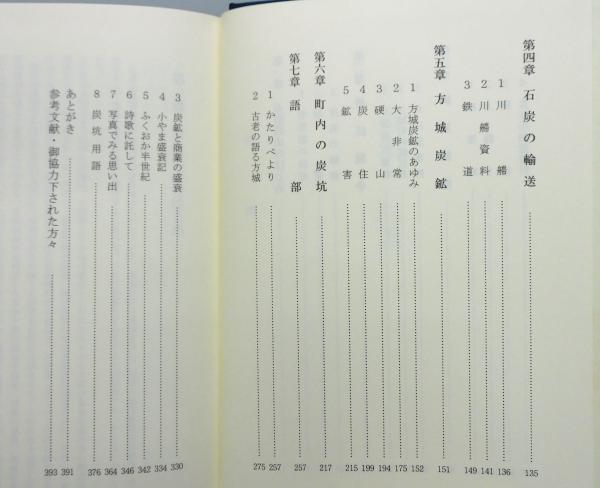 第四章 石炭の輸送 135
1 川艜 136
2 川艜資料 141
3 鉄道 149
第五章 方城炭鉱 151
1 方城炭鉱のあゆみ 152
2 大非常 175
3 硬山 194
4 炭住 199
5 鉱害 215
第六章 町内の炭坑 217
第七章 語部 257
1 かたりべより 257
2 古老の語る方城 275
3 炭鉱と商業の盛衰 330
4 小やま盛衰記 334
5 ふくおか半世紀 342
6 詩歌に託して 346
7 写真でみる思い出 364
8 炭坑用語 376
あとがき 391
参考文献・御協力下された方々 393